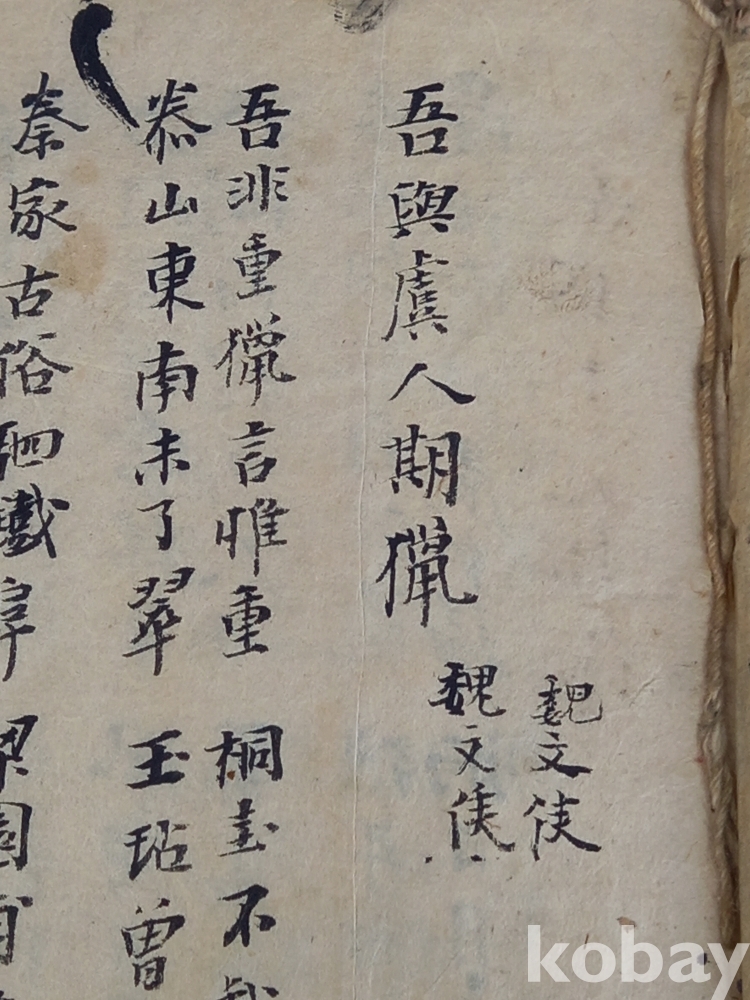 吾與虞人期獵
魏文侯
魏文侯
吾非重獵言惟重 桐圭不
泰山東南未了翠 玉玷曾
秦家古俗
kobay